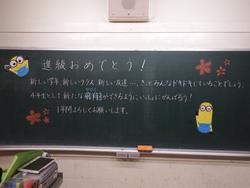 進級おめでとう!
新しい学年、新しいクラス、新しい友達…、きっとみんなドキドキしていることでしょう。
4年生として新たな飛翔ができるように、いっしょにがんばろう!
1年間よろしくお願いします。